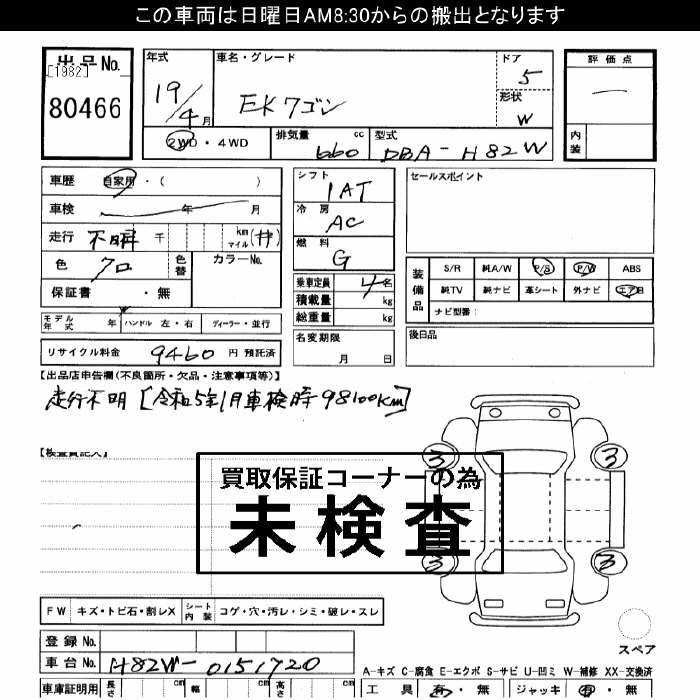 この車両は日曜日AM8:30からの搬出となります
出品No.
[1982]
80466
年式 車名・グレード ドア 評価点
19/4月 EKワゴン 5 一
形状
W
2WD・4WD 排気量 cc 型式 内装
660 DBA-H82W
車歴 自家用・( )
車検 年 月
走行 不明 千 km マイル (#)
色 クロ 色替 カラーNo.
保証書 ・無
シフト
1AT
冷房
AC
燃料
G
乗車定員 4名
積載量 kg
総重量 kg
セールスポイント
装備品 S/R 純A/W P/S P/W ABS
純TV 純ナビ 革シート 外ナビ エアB
ナビ型番:
モデル年式 年 ハンドル 左・右 ディーラー・並行
名変期限
月 日
後日品
リサイクル料金 9460 円 預託済
【出品店申告欄(不良箇所・欠品・注意事項等)】
走行不明[令和5年1月車検時98100km]
【検査員記入】
買取保証コーナーの為
未検査
3 3
3 3
FW キズ・トビ石・割レX シート内装 コゲ・穴・汚レ・シミ・破レ・スレ
スペア
登録No.
車台No. H82W-0151720
A-キズ C-腐食 E-エクボ S-サビ U-凹ミ W-補修 XX-交換済
車庫証明用 長さ cm 幅 cm 高さ cm 工具 有・無 ジャッキ 有・無